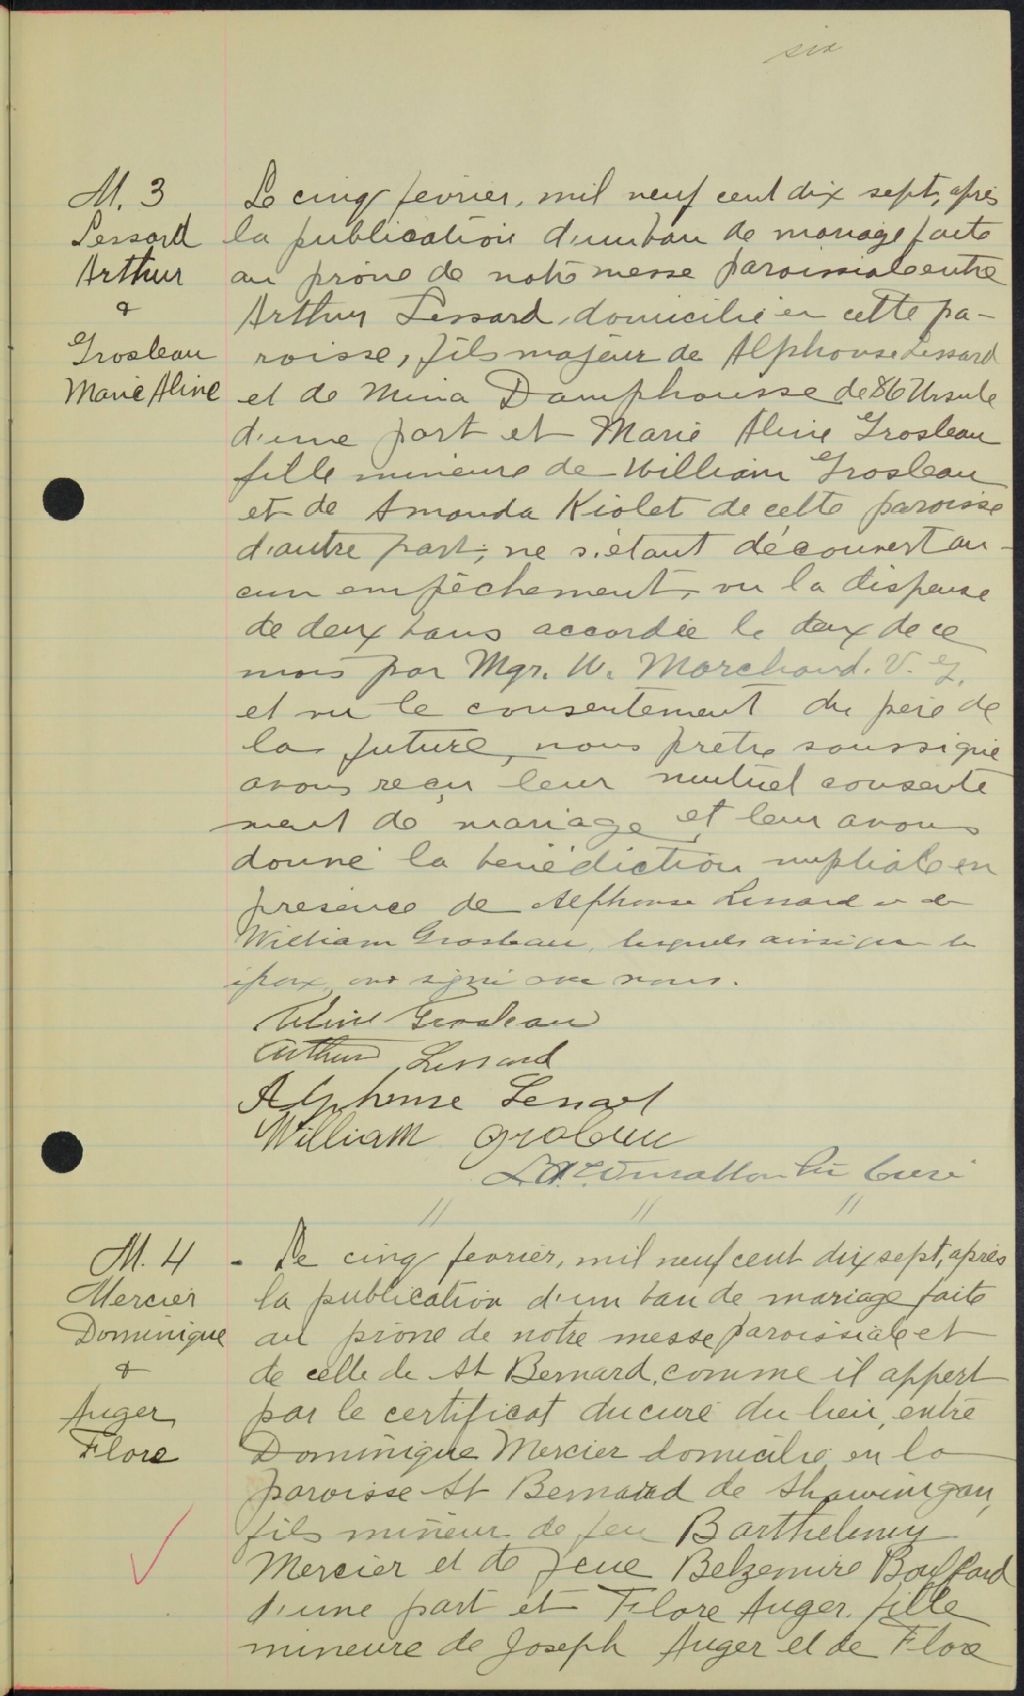 six
M. 3
Lessard
Arthur
&
Grosleau
Marie Aline
Le cinq fevrier, mil neuf cent dix sept, après
la publication d'un ban de mariage faite
au prône de notre messe paroissiale entre
Arthur Lessard, domicilié en cette pa-
roisse, fils majeur de Alphonse Lessard
et de Mina Damphousse de Ste Ursule
d'une part et Marie Aline Grosleau
fille mineure de William Grosleau
et de Amanda Kiolet de cette paroisse
d'autre part; ne s'étant découvert au-
cun empêchement, vu la dispense
de deux bans accordée le deux de ce
mois par Mgr. W. Marchand. V. G.
et vu le consentement du père de
la future, nous prêtre soussigné
avons reçu leur mutuel consente
ment de mariage et leur avons
donné la bénédiction nuptiale en
présence de Alphonse Lessard et de
William Grosleau, lesquels ainsi que les
époux, ont signé avec nous.
Aline Grosleau
Arthur Lessard
Alphonse Lesard
William
Ptre Curé
" " "
M. 4
Mercier
Dominique
&
Auger
Flore
- Le cinq fevrier, mil neuf cent dix sept, après
la publication d'un ban de mariage faite
au prône de notre messe paroissiale et
de celle de St Bernard, comme il appert
par le certificat du curé du lieu, entre
Dominique Mercier domicilié en la
paroisse St Bernard de Shawinigan,
fils mineur de feu Barthelemy
Mercier et de feue Belzemire Bouffard
d'une part et Flore Auger, fille
mineure de Joseph Auger et de Flore